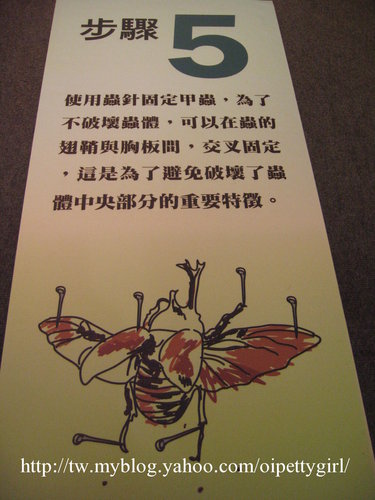 步驟 5
使用蟲針固定甲蟲，為了
不破壞蟲體，可以在蟲的
翅鞘與胸板間，交叉固定
，這是為了避免破壞了蟲
體中央部分的重要特徵。
http://tw.myblog.yahoo.com/oipettygirl/